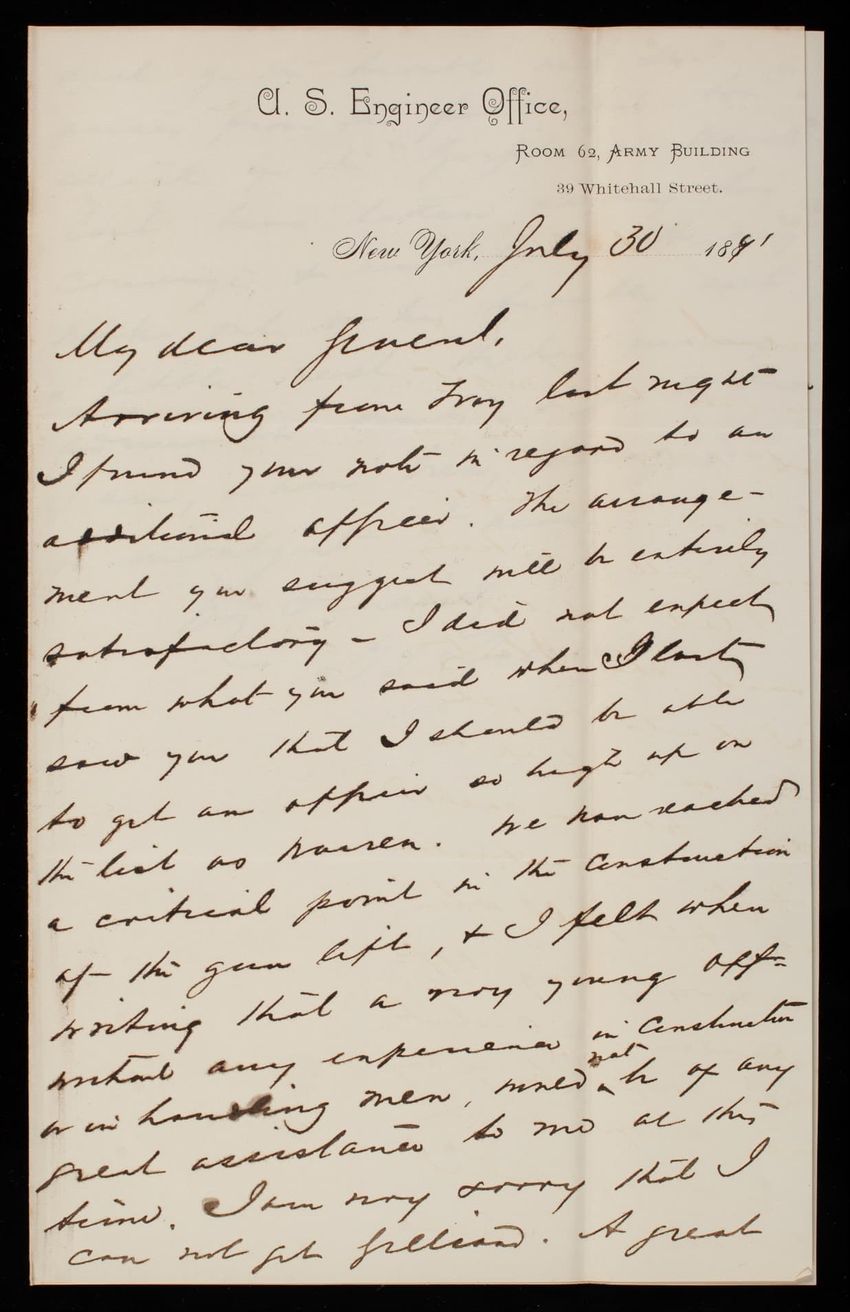 U. S. Engineer Office,
ROOM 62, ARMY BUILDING
39 Whitehall Street.
New York, July 30 1891
My dear General,
Arriving from Troy last night
I found your note in regard to an
additional officer. The arrange-
ment you suggest will be entirely
satisfactory - I did not expect
from what you said when I last
saw you that I should be able
to get an officer so high up on
the list as Warren. We have reached
a critical point in the construction
of the gun lift, & I felt when
writing that a very young off-
without any experience in construction
or in handling men, would not be of any
great assistance to me at this
time. I am very sorry that I
can not get Gilliard. A great